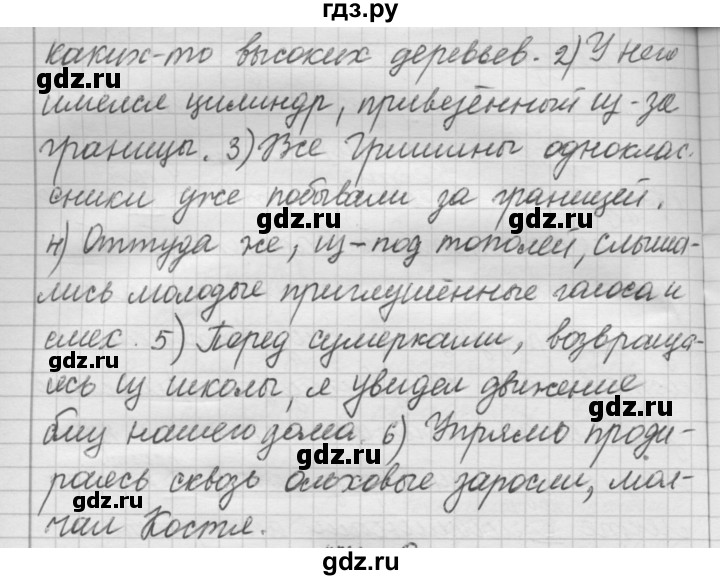 гдз.ру
каких-то высоких деревьев. 2) У него
gdz.ru gdz.ru
имелся цилиндр, привезённый из-за
границы. 3) Все Гришины одноклас-
сники уже побывали за границей.
gdz.ru gdz.ru
4) Оттуда же, из-под тополей, слыша-
лись молодые приглушённые голоса и
смех. 5) Перед сумерками, возвраща-
gdz.ru gdz.ru
ясь из школы, я увидел движение
близ нашего дома. 6) Упрямо проди-
gdz.ru gdz.ru
раясь сквозь ольховые заросли, мол-
чал Костя.
gdz.ru